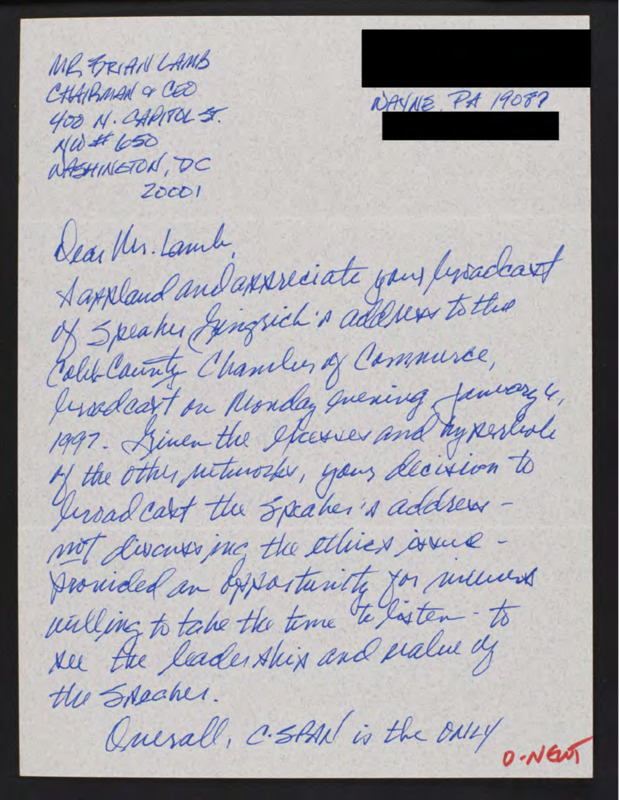 MR. BRIAN LAMB
CHAIRMAN & CEO
400 N. CAPITOL ST.
NW # 650
WASHINGTON, DC
20001
WAYNE, PA 19087
Dear Mr. Lamb,
I applaud and appreciate your broadcast
of Speaker Gingrich's address to the
Cobb County Chamber of Commerce,
broadcast on Monday evening, January 6,
1997. Given the excesses and hyperbole
of the other networks, your decision to
broadcast the Speaker's address -
not discussing the ethics issue -
provided an opportunity for viewers
willing to take the time to listen - to
see the leadership and value of
the Speaker.
Overall, C-SPAN is the ONLY
O-NEWT